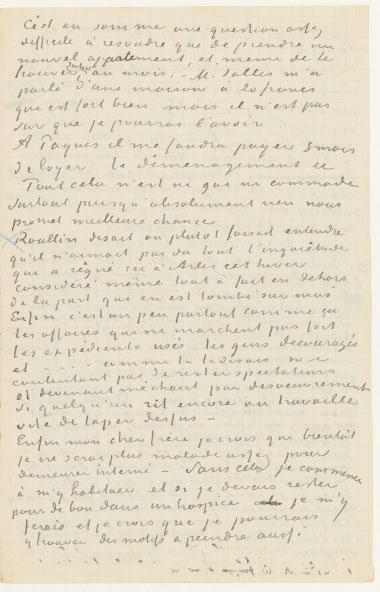 C'est en somme une question assez
difficile à resoudre que de prendre un
nouvel appartement, et même de le
trouver, surtout au mois. – M. Salles m'a
parlé d'une maison à 20 francs
qui est fort bien mais il n'est pas
sûr que je pourrais l'avoir
A Pâques il me faudra payer 3 mois
de loyer le déménagement &c
Tout cela n'est ni gai ni commode
surtout puisqu'absolument rien nous
promet meilleure chance
Roullin disait ou plutôt faisait entendre
qu'il n'aimait pas du tout l'inquiétude
qui a règné ici à Arles cet hiver
consideré même tout à fait en dehors
de la part qui en est tombé sur moi
Enfin c'est un peu partout comme ça
les affaires qui ne marchent pas fort
les expédients usés les gens découragés
et ..... comme tu le disais ne se
contentant pas de rester spectateurs
et devenant méchant par desoeuvrement
si quelqu'un rit encore ou travaille
vite de taper dessus –
Enfin mon cher frère je crois que bientôt
je ne serai plus malade assez pour
demeurer interné – Sans cela je commence
à m'y habituer et si je devais rester
pour de bon dans un hospice je m'y
ferais et je crois que je pourrais
y trouver des motifs à peindre aussi.